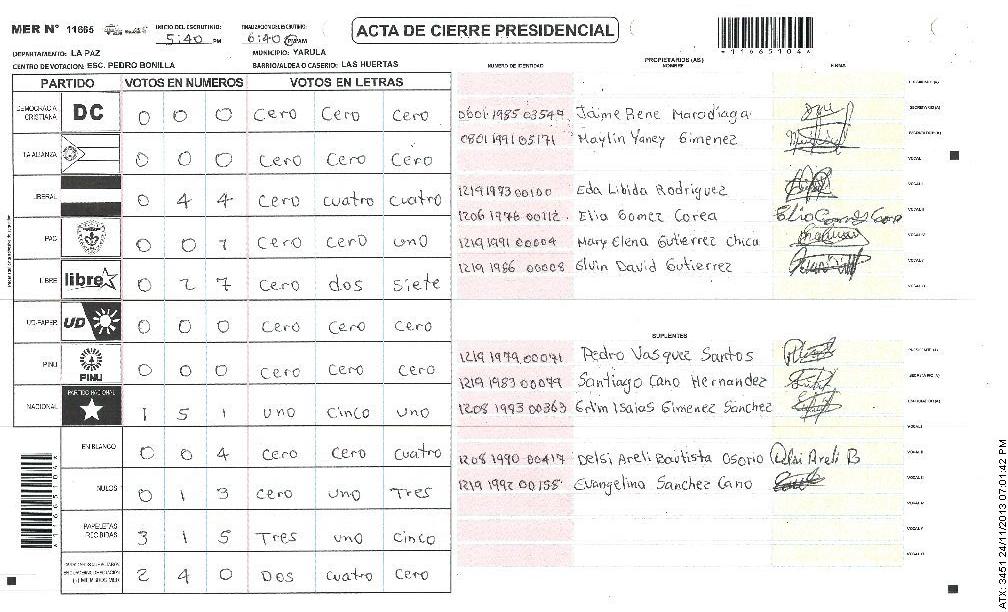 MER N° 11665 INICIO DEL ESCRUTINIO: 5:40 PM FINALIZACION DEL ESCRUTINIO: 6:40 PM/AM
ACTA DE CIERRE PRESIDENCIAL
*1166504*
DEPARTAMENTO: LA PAZ MUNICIPIO: YARULA
CENTRO DE VOTACION: ESC. PEDRO BONILLA BARRIO/ALDEA O CASERIO: LAS HUERTAS
PROPIETARIOS (AS)
NUMERO DE IDENTIDAD NOMBRE FIRMA
PARTIDO VOTOS EN NUMEROS VOTOS EN LETRAS
DEMOCRACIA CRISTIANA DC 0 0 0 Cero Cero Cero
0601 1985 03549 Jaime Rene Maradiaga
0801 1991 05171 Maylin Yaney Gimenez
LA ALIANZA 0 0 0 Cero Cero Cero
LIBERAL 0 4 4 Cero cuatro cuatro
1219 1973 00100 Eda Libida Rodriguez
1206 1976 00112. Elia Gomez Corea
PAC 0 0 1 Cero Cero uno
1219 1991 00004 Mary Elena Gutierrez Chica
1219 1986 00008 Elvin David Gutierrez
LIBRE libre 0 2 7 Cero dos siete
UD-FAPER UD 0 0 0 Cero Cero Cero
SUPLENTES
PINU PINU 0 0 0 Cero Cero Cero
1219 1979 00071 Pedro Vasquez Santos
1219 1983 00079 Santiago Cano Hernandez
NACIONAL PARTIDO NACIONAL 1 5 1 uno Cinco uno
1208 1993 00363 Erlim Isaias Gimenez Sanchez
EN BLANCO 0 0 4 Cero Cero cuatro
1208 1990 00417 Delsi Areli Bautista Osorio Delsi Areli B
NULOS 0 1 3 Cero uno Tres
1219 1992 00155 Evangelina Sanchez Cano
PAPELETAS RECIBIDAS 3 1 5 Tres uno cinco
(+) MIEMBROS MER 2 4 0 Dos cuatro cero
ATX: 3451 24/11/2013 07:01:42 PM